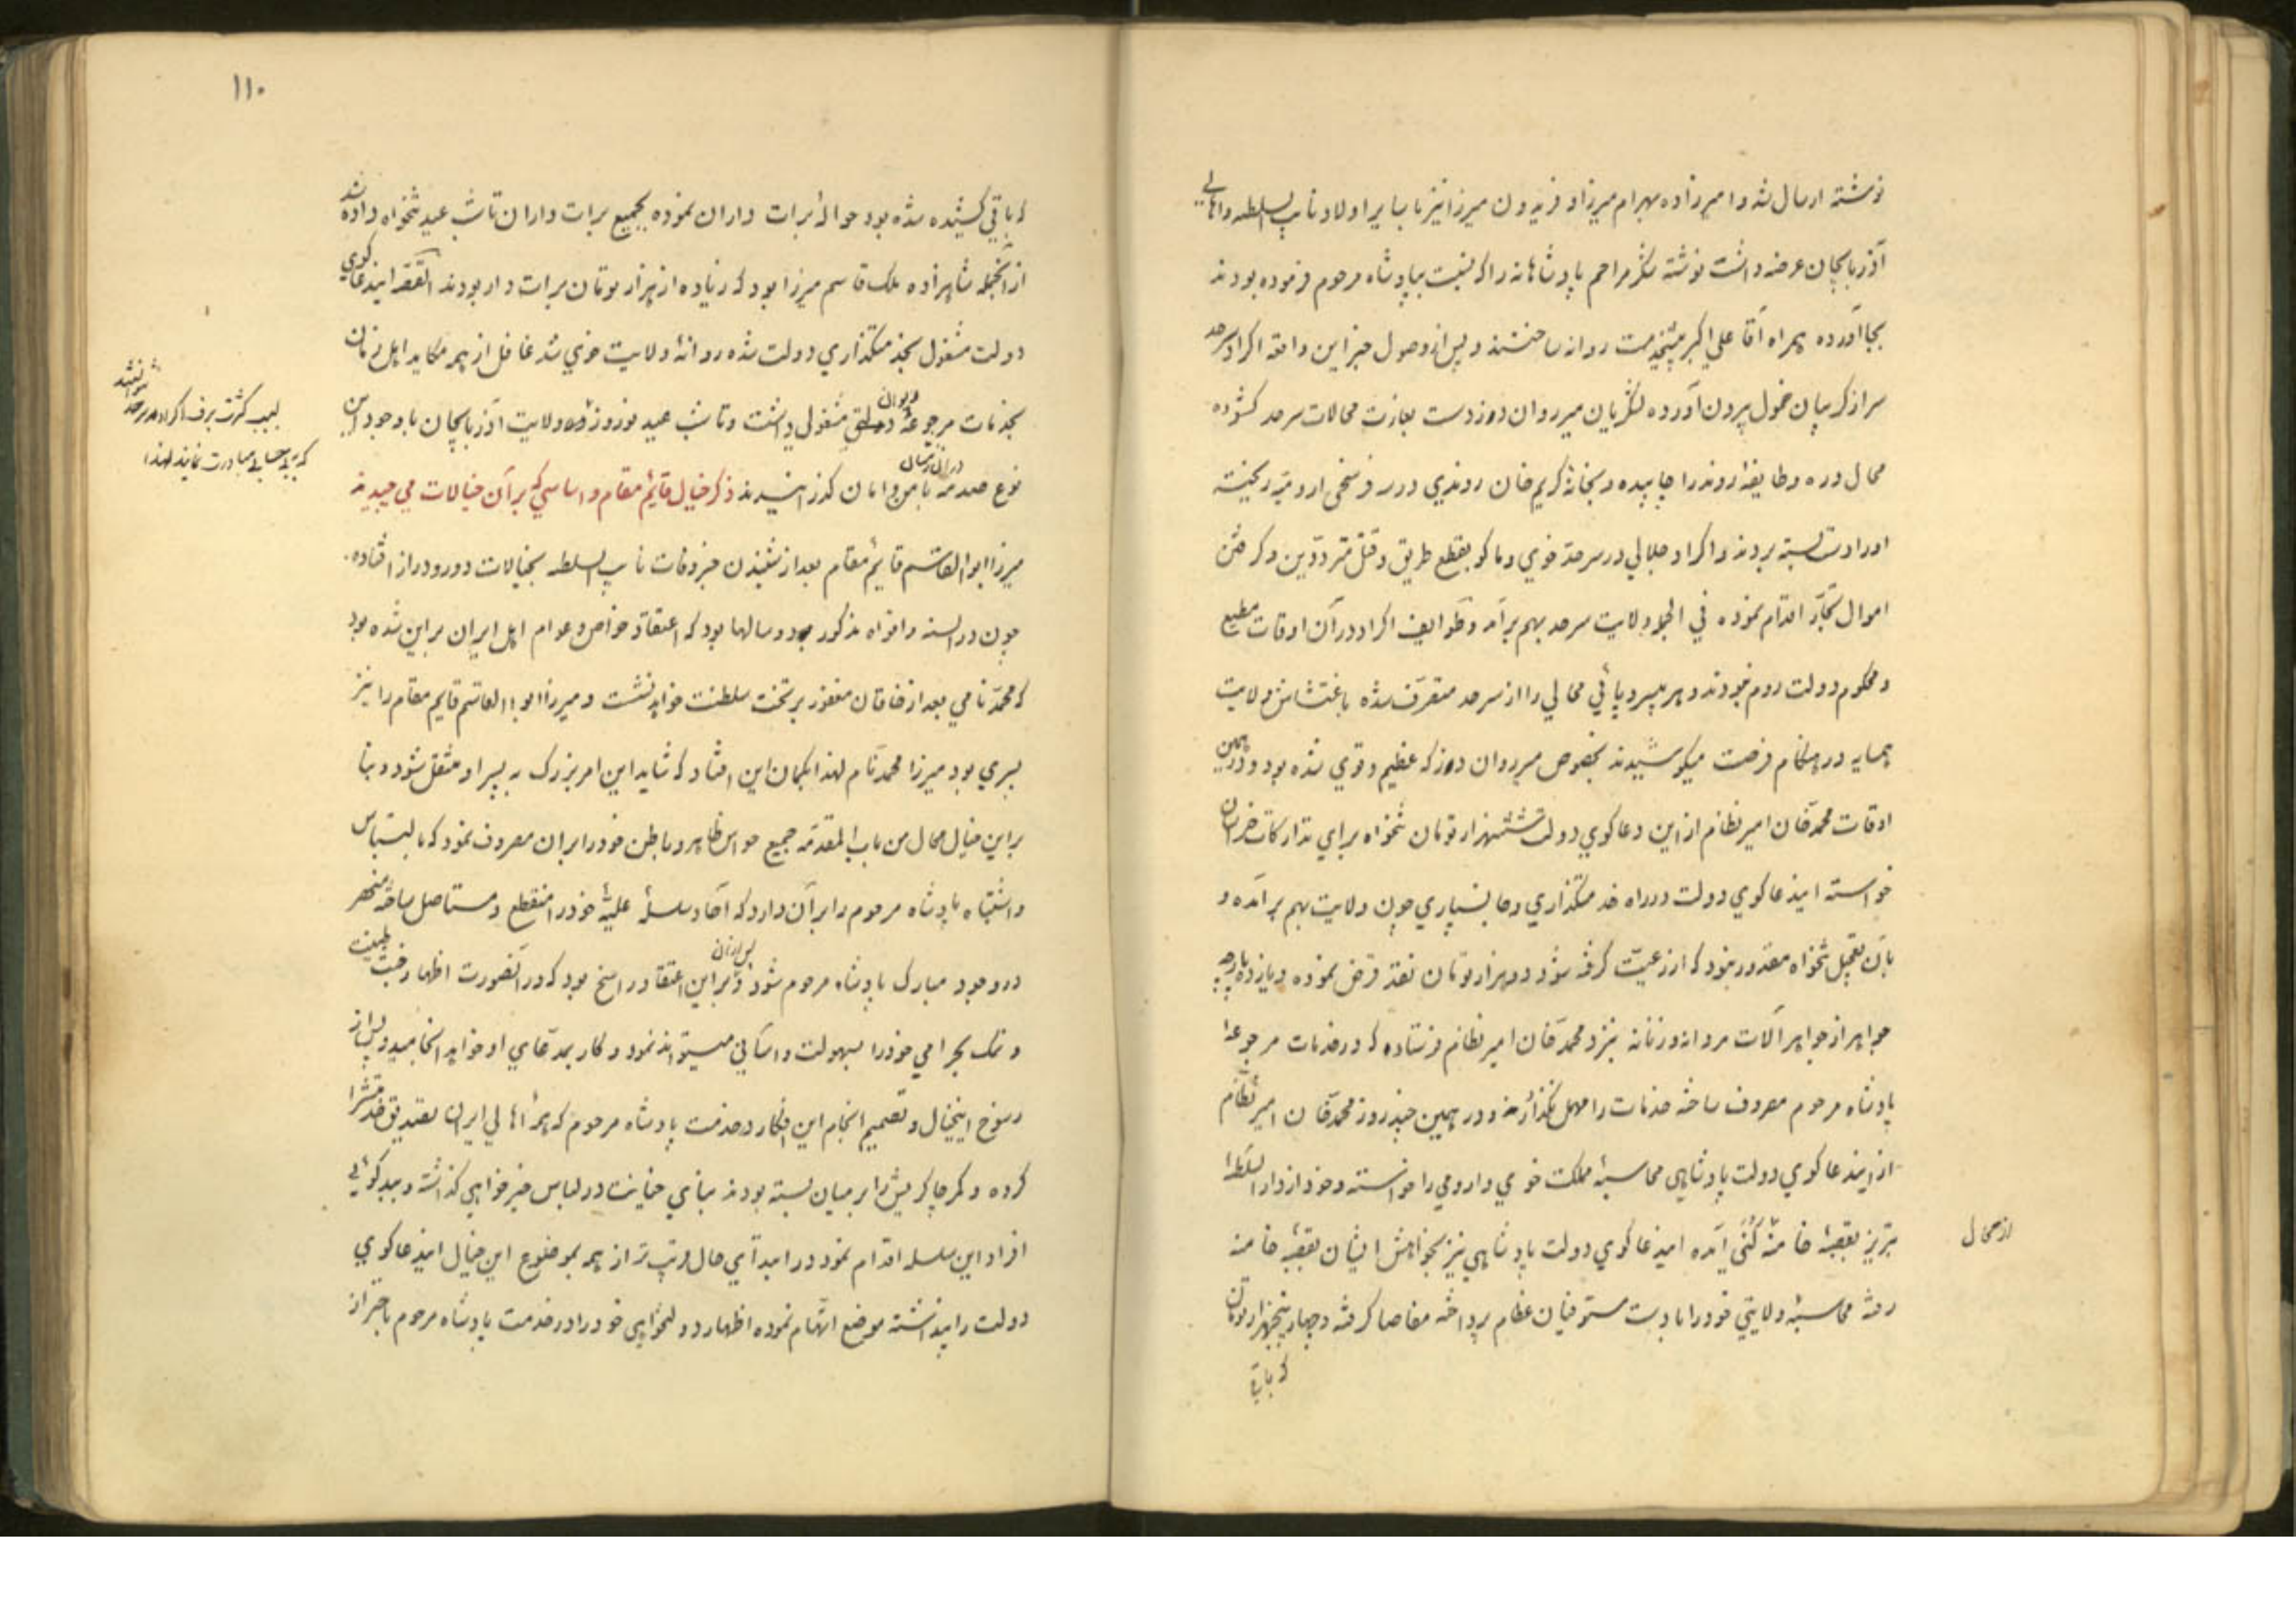 نوشته ارسال شد و امیرزاده بهرام میرزا و فریدون میرزا نیز با سایر اولاد نایب السلطنه و اهالی
آذربایجان عرضه داشت نوشته شکر مراحم پادشاهانه را که نسبت بپادشاه مرحوم فرموده بودند
بجا آورده همراه آقا علی اکبر پیشخدمت روانه ساختند و پس از وصول خبر این واقعه اکراد سرحد
سر از کریبان خمول بیرون آورده لشکریان میر روان دوز دست بغارت محالات سرحد کشوده
محال دره و طایفه روند را چاپیده و بخانه کریم خان روندی در سه فرسخی ارومیه ریخته
او را دست بسته بردند و اکراد جلالی در سرحد خوی و ماکو بقطع طریق و قتل مترددین و کرفتن
اموال تجار اقدام نموده فی الجمله ولایت سرحد بهم برآمد و طوایف اکراد در آن اوقات مطیع
و محکوم دولت روم نبودند و هر بیسر و پائی محالی را از سرحد متصرف شده باغتشاش ولایت
همسایه در هنکام فرصت میکوشیدند بخصوص میر روان دوز که عظیم و قوی شده بود و در همین
اوقات محمد خان امیر نظام از این دعاکوی دولت هشتهزار تومان تنخواه برای تدارکات خراسان
خواسته اینداعاکوی دولت در راه خدمتکذاری و جانسپاری چون ولایت بهم برآمده و
بآن تعجیل تنخواه مقدور نبود که از رعیت کرفته شود دو هزار تومان نقد قرض نموده و یازده پارچه
جواهر از جواهر آلات مردانه و زنانه بنزد محمد خان امیر نظام فرستاده که در خدمات مرجوعه
پادشاه مرحوم مصروف ساخته خدمات را مهمل نکذارند و در همین چند روز محمد خان امیر نظام
از اینداعاکوی دولت پادشاهی محاسبه مملکت خوی و ارومی را خواسته و خود از دار السلطنه
تبریز بقصبه خامنه کنی آمده اینداعاکوی دولت پادشاهی نیز بخواهش ایشان بقصبه خامنه
از محال
رفته محاسبه ولایتی خود را با دست مستوفیان عظام پرداخته مفاصا کرفته و چهار پنجهزار تومان
که باقی
۱۱۰
که باقی کشیده شده بود حواله برات داران نموده بجمیع برات داران تا شب عید تنخواه داده شد
از آنجمله شاهزاده ملک قاسم میرزا بود که زیاده از هزار تومان برات دار بودند القصه اینداعاکوی
دولت مشغول بخدمتکذاری دولت شده روانه ولایت خوی شد غافل از همه مکاید اهل زمان
بخدمات مرجوعه دیوان مشغول داشت و تا شب عید نوروز ولایت آذربایجان با وجود این
بسبب کثرت برف اکراد سرحد نتوانستند
که به بیحسابی مبادرت نمایند لهذا
نوع صدمه در آن زمستان با من و امان کذرانیدند ذکر خیال قائم مقام و اساسی که بر آن خیالات می چیدند
میرزا ابوالقاسم قایم مقام بعد از شنیدن خبر وفات نایب السلطنه بخیالات دور و دراز افتاده
چون در السنه و افواه مذکور بود و سالها بود که اعتقاد خواص و عوام اهل ایران بر این شده بود
که محمد نامی بعد از خاقان مغفور بر تخت سلطنت خواهد نشست و میرزا ابوالقاسم قایم مقام را نیز
پسری بود میرزا محمد نام لهذا بکمان این افتاد که شاید این امر بزرک به پسر او منتقل شود و بنا
بر این خیال محال من باب المقدمه جمیع حواس ظاهر و باطن خود را بر آن مصروف نمود که با لتباس
و اشتباه پادشاه مرحوم را بر آن دارد که آحاد سلسله علیه خود را منقطع و مستاصل ساخته منحصر
در وجود مبارک پادشاه مرحوم شود و پس از آن بر این اعتقاد راسخ بود که در آنصورت اظهار خبث طینت
و نمک بحرامی خود را بسهولت و آسانی میتواند نمود و کار بمدعای او خواهد انجامید و پس از
رسوخ اینخیال و تصمیم انجام این افکار در خدمت پادشاه مرحوم که همه اهالی ایران تصدیق خدمتش را
کرده و کمر چاکریش را بر میان بسته بودند بنای خیانت در لباس خیرخواهی کذاشته و ببدکوئی
افراد این سلسله اقدام نمود در ابتدای حال مرتب تر از همه بموضوع این خیال اینداعاکوی
دولت را پنداشته موضع اتهام نموده اظهار دولتخواهی خود را در خدمت پادشاه مرحوم باحتراز